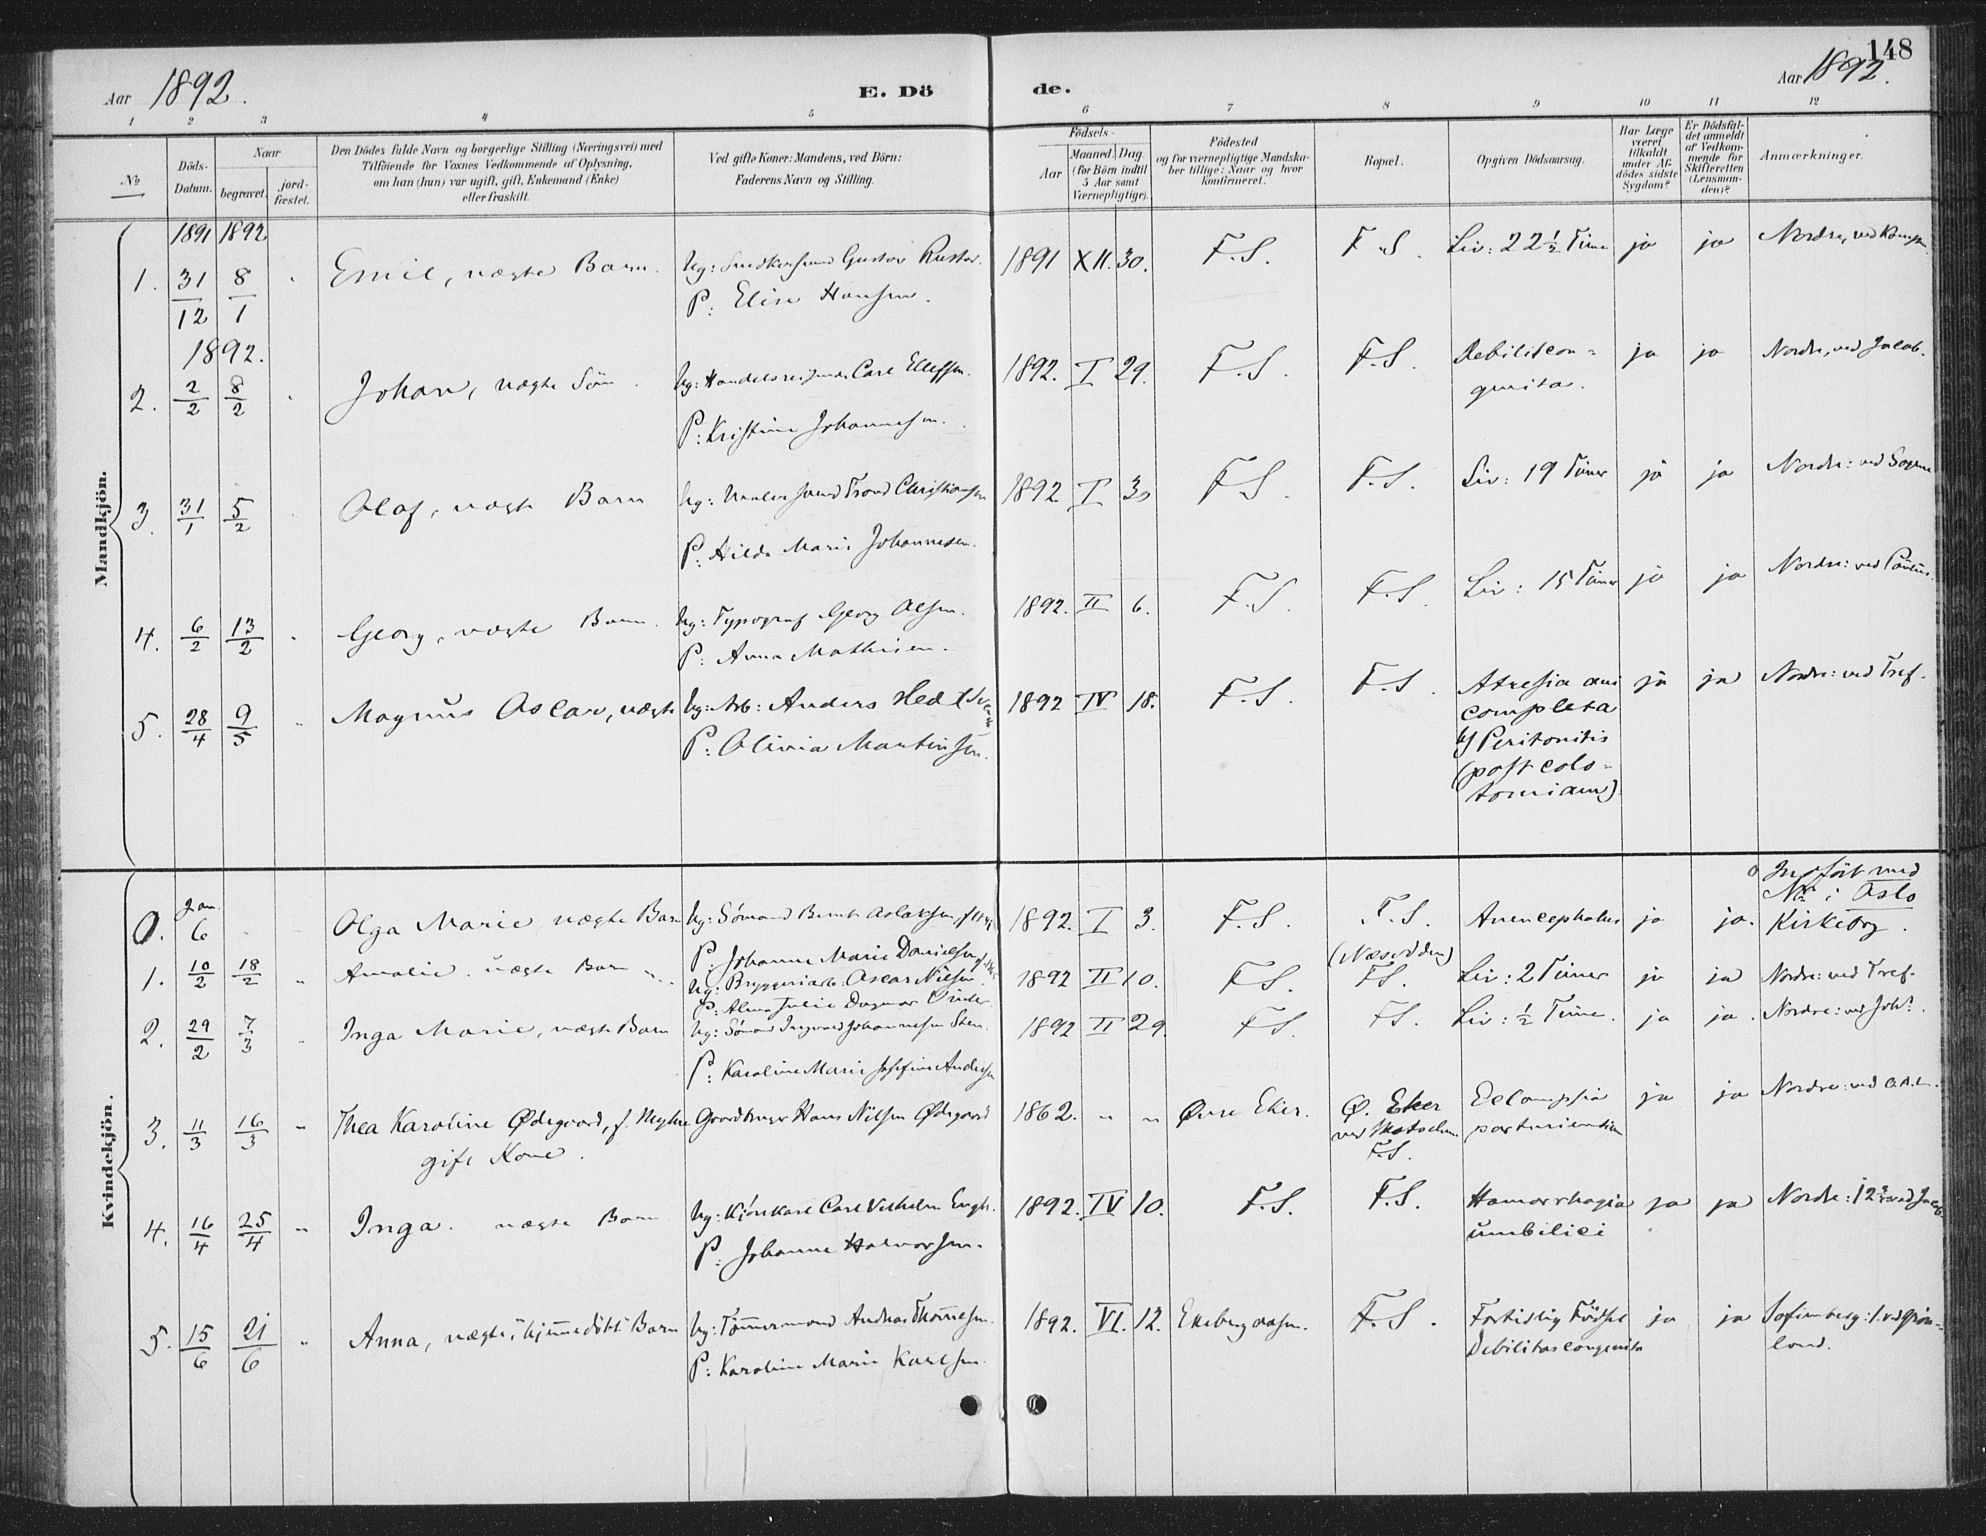 148
Aar 1892.
E. Dö
de.
Aar 1892.
1 2 3 4 5 6 7 8 9 10 11 12
No
Döds-Datum.
Naar
begravet.
jord-fæstet.
Den Dödes fulde Navn og borgerlige Stilling (Næringsvei) med
Tilföiende for Voxnes Vedkommende af Oplysning,
om han (hun) var ugift, gift, Enkemand (Enke)
eller fraskilt.
Ved gifte Koner: Mandens, ved Börn:
Faderens Navn og Stilling.
Födsels-
Aar
Maaned. Dag
(for Börn indtil
5 Aar samt
Værnepligtige).
Födested
og for værnepligtige Mandska-
ber tillige: Naar og hvor
konfirmeret.
Bopæl.
Opgiven Dödsaarsag.
Har Læge
været
tilkaldt
under Af-
dödes sidste
Sygdom?
Er Dödsfal-
det anmeldt
af Vedkom-
mende for
Skifteretten
(Lensman-
den)?
Anmærkninger.
Mandkjön.
1891 1892
1. 31/12 8/1 Emil, uægte Barn. Ug: Snedkersvend Gustav Rustad. 1891 XII. 30. F.S. F.S. Liv: 22 1/2 Time ja ja Nordre, ved
P: Elise Hansen.
1892.
2. 2/2 8/2 Johan, uægte Søn. Ug: Handelsreisende Carl Ellefsen. 1892. I 29. F.S. F.S. Debilit con-
genita. ja ja Nordre, ved Jacob.
P: Kristine Johannesen.
3. 31/1 5/2 Olaf, uægte Barn Ug: Malersvend Trond Christiansen 1892 I 30 F.S. F.S. Liv: 19 Timer ja ja Nordre: ved
P: Hilda Marie Johannesen.
4. 6/2 13/2 Georg, uægte Barn. Ug: Typograf Georg Olsen. 1892. II 6. F.S. F.S. Liv: 15 Timer ja ja Nordre: ved Paulus.
P: Anna Mathisen.
5. 28/4 9/5 Magnus Oscar, uægte Ug: Arb: Anders Hed 1892 IV 18. F.S. F.S. Atresia ani
completa
b) Peritonitis
(post colo-
tomiam) ja ja Nordre: ved Tref.
P: Olivia Martinsen.
Kvindekjön.
0. Jan. 6 Olga Marie uægte Barn Ug: Sømand Bernt Aslaksen 1892. I 3. F.S. F.S.
(Næsodden) Anencephalus ja ja. Indført med
No i Oslo
Kirkebog.
P: Johanne Marie Danielsen
1. 10/2 18/2 Amalie. uægte Barn Ug: Bryggeriarb: Oscar Nilsen 1892 II 10. F.S. F.S. Liv: 2 Timer ja ja Nordre: ved Tref.
P: Alma Julie Dagmar
2. 29/2 7/3 Inga Marie, uægte Barn Ug: Sømand Ingvald Johannesen Sten. 1892 II 29. F.S. F.S. Liv: 1/2 Time. ja ja. Nordre: ved Joh?.
P: Karoline Marie Josefine Andersen
3. 11/3 16/3 Thea Karoline Ødegaard, f. Myhre
gift Kone. Gaardbruger Hans Nilsen Ødegaard 1862. Øvre Eker. Ø. Eker
ved
F.S. Eclampsia
parturientium ja ja Nordre: ved
4. 16/4 25/4 Inga. uægte Barn Ug: Kjørekarl Carl Vilhelm 1892. IV 10. F.S. F.S. Hæmorrhagia
umbilici ja ja Nordre: ved Jacob
P: Johanne Halvorsen.
5. 15/6 21/6 Anna, uægte, "hjemmedöbt" Barn Ug: Tømmermand Andreas Thoresen. 1892. VI. 12. Ekebergaasen. F.S. Fortidlig Födsel
Debilitas congenita ja ja Sofienberg: ved Grön-
land.
P: Karoline Marie Karlsen.